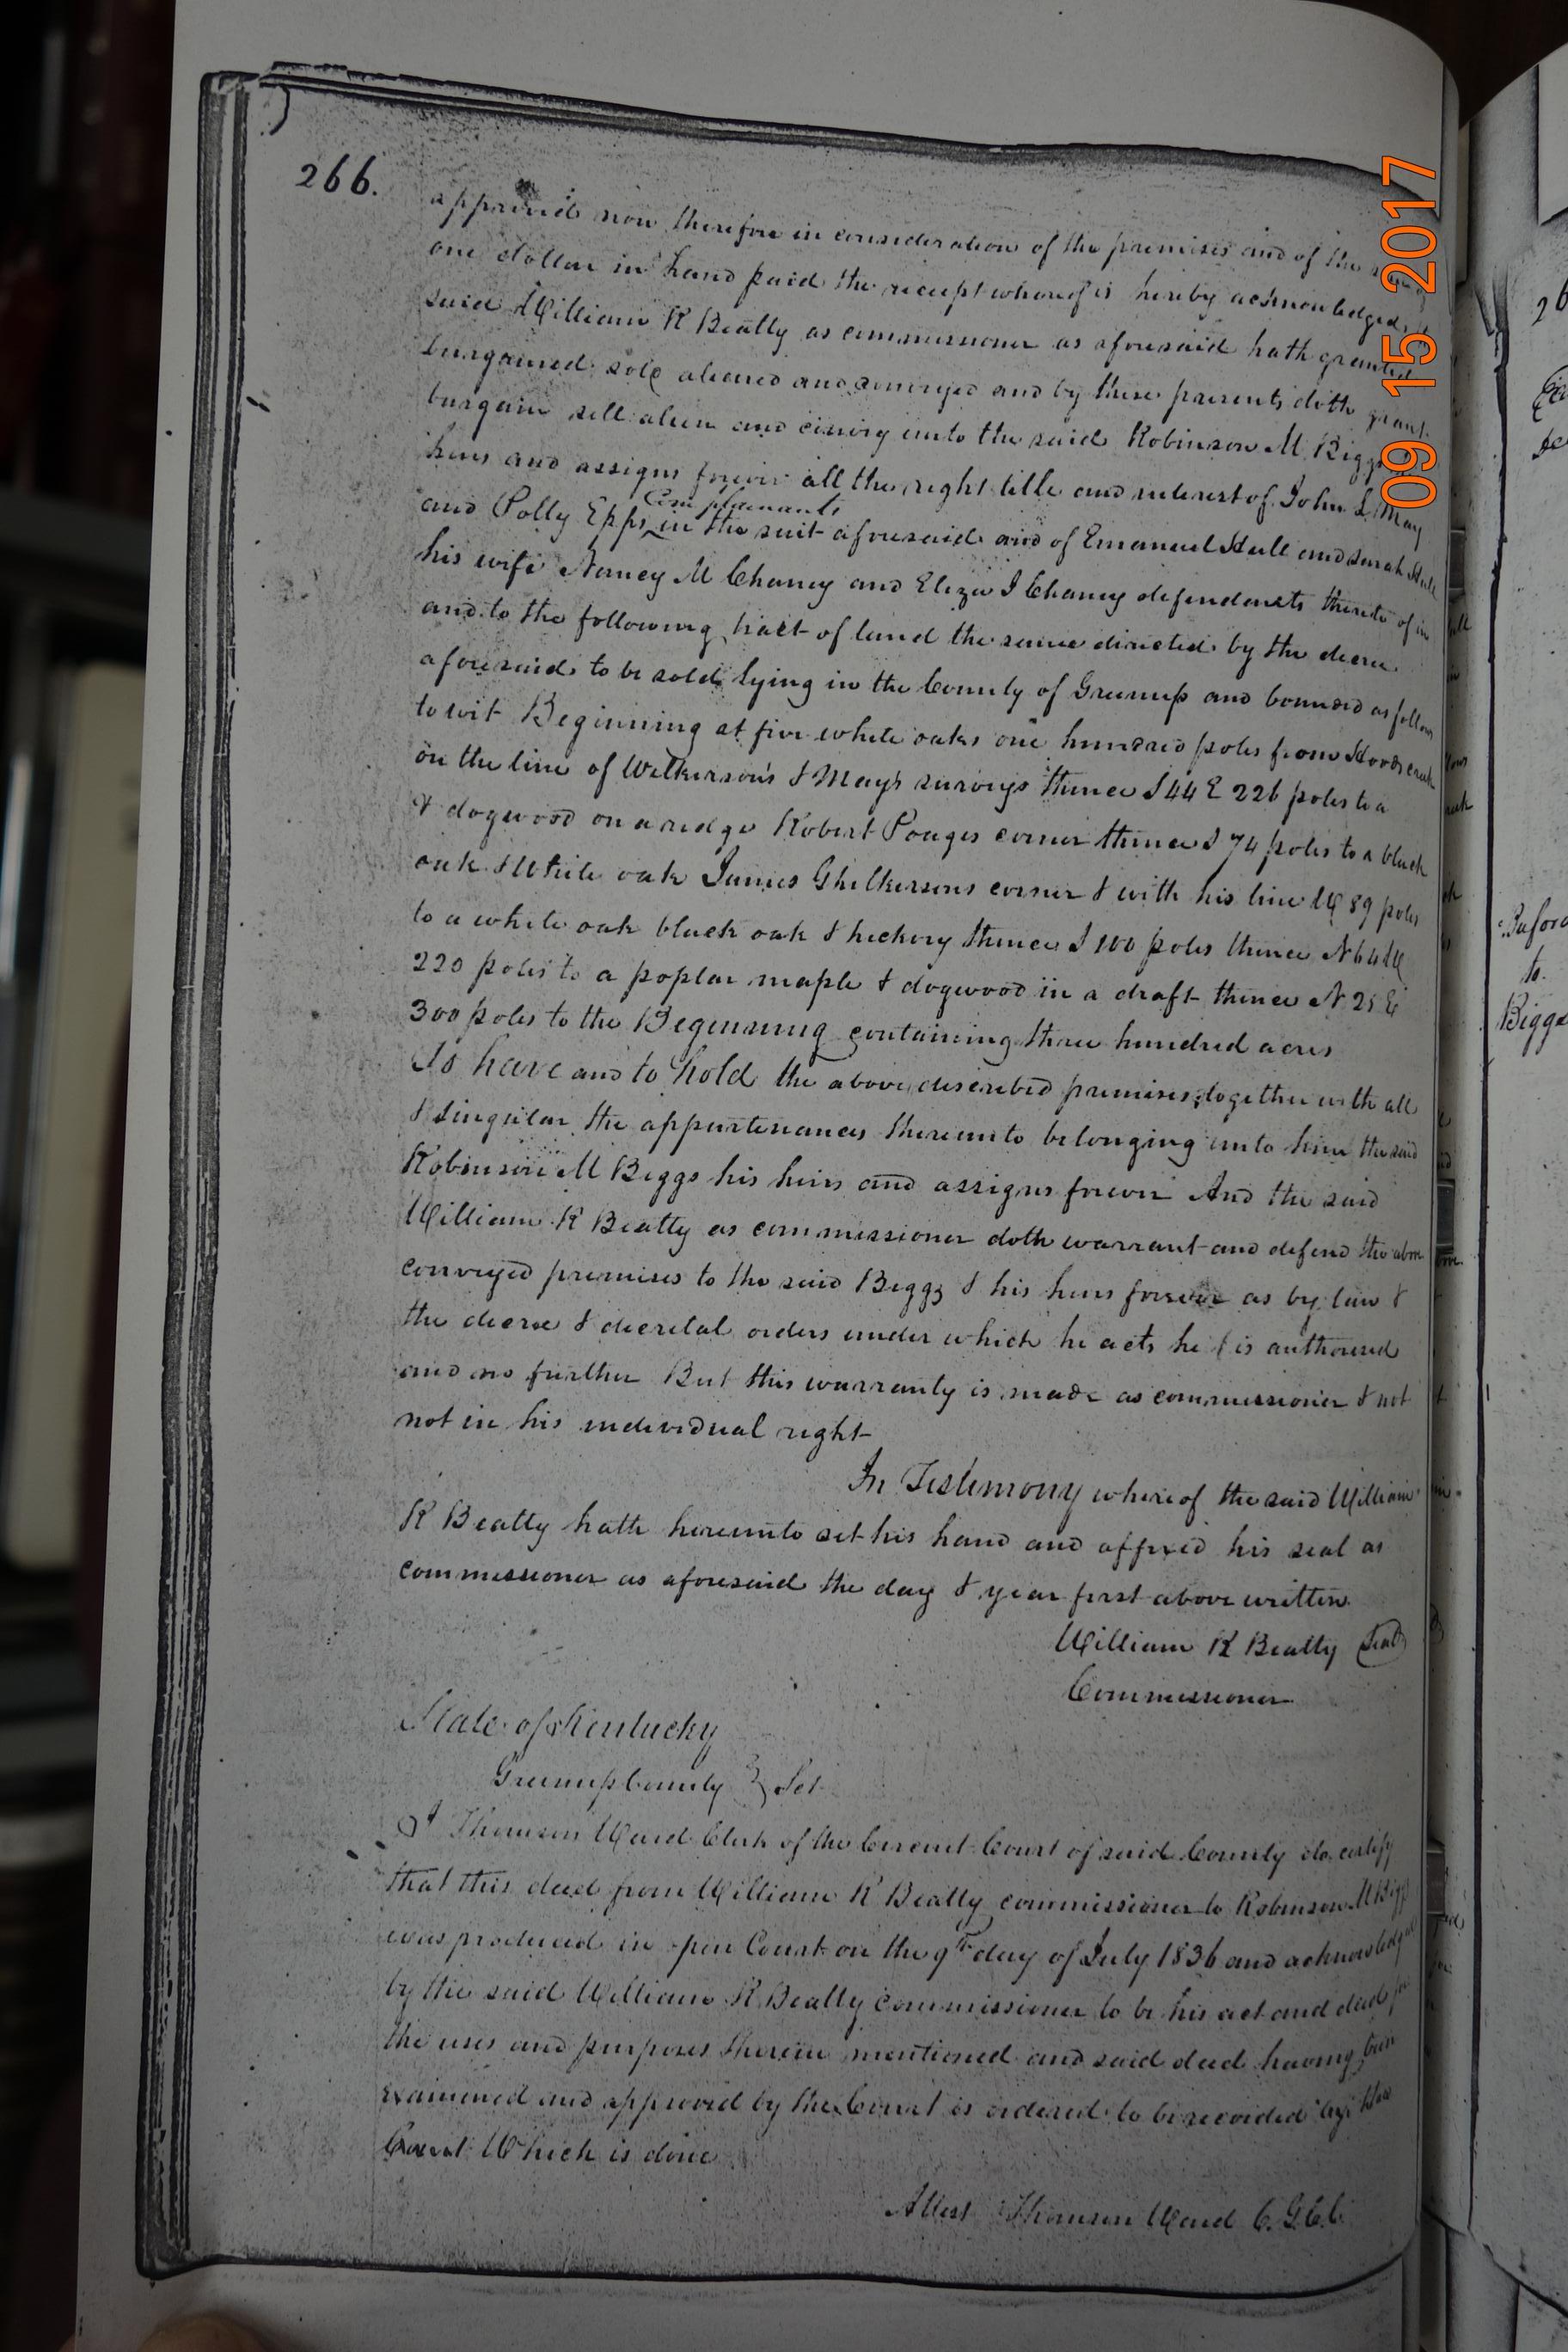 266.
approved now therefore in consideration of the premises and of the sum of
one dollar in hand paid the receipt whereof is hereby acknowledged
said William R Beatty as commissioner as aforesaid hath granted
bargained sold aliened and conveyed and by these presents doth grant
bargain sell alien and convey unto the said Robinson M Biggs
heirs and assigns forever all the right title and interest of John L May
Complainants
and Polly Epps in the suit aforesaid and of Emanuel Hull and Sarah Hull
his wife Nancy M Chaney and Eliza J Chaney defendants thereto of in
and to the following tract of land the same directed by the decree
aforesaid to be sold lying in the County of Greenup and bounded as follows
to wit Beginning at five white oaks one hundred poles from Hoods creek
on the line of Wilkerson's & May's surveys thence S 44 E 226 poles to a
& dogwood on a ridge Robert Poages corner thence S 74 poles to a black
oak & White oak James Ghilkersons corner & with his line W 89 poles
to a white oak black oak & hickory thence S 100 poles thence N 64 W
220 poles to a poplar maple & dogwood in a draft thence N 25 E
300 poles to the Beginning containing three hundred acres
To have and to hold the above described premises together with all
& singular the appurtenances thereunto belonging unto him the said
Robinson M Biggs his heirs and assigns forever And the said
William R Beatty as commissioner doth warrant and defend the above
conveyed premises to the said Biggs & his heirs forever as by law &
the decree & decretal orders under which he acts he is authorised
and no further But this warranty is made as commissioner & not
not in his individual right
In Testimony whereof the said William
R Beatty hath hereunto set his hand and affixed his seal as
commissioner as aforesaid the day & year first above written
William R Beatty Seal
Commissioner
State of Kentucky
Greenup County } Sct
I Thomson Ward Clerk of the Circuit Court of said County do certify
that this deed from William R Beatty commissioner to Robinson M Biggs
was produced in open Court on the 9th day of July 1836 and acknowledged
by the said William R Beatty commissioner to be his act and deed for
the uses and purposes therein mentioned and said deed having been
examined and approved by the Court is ordered to be recorded by the
Court Which is done
Attest Thomson Ward C.G.C.C.
09 15 2017
Buford
to
Biggs